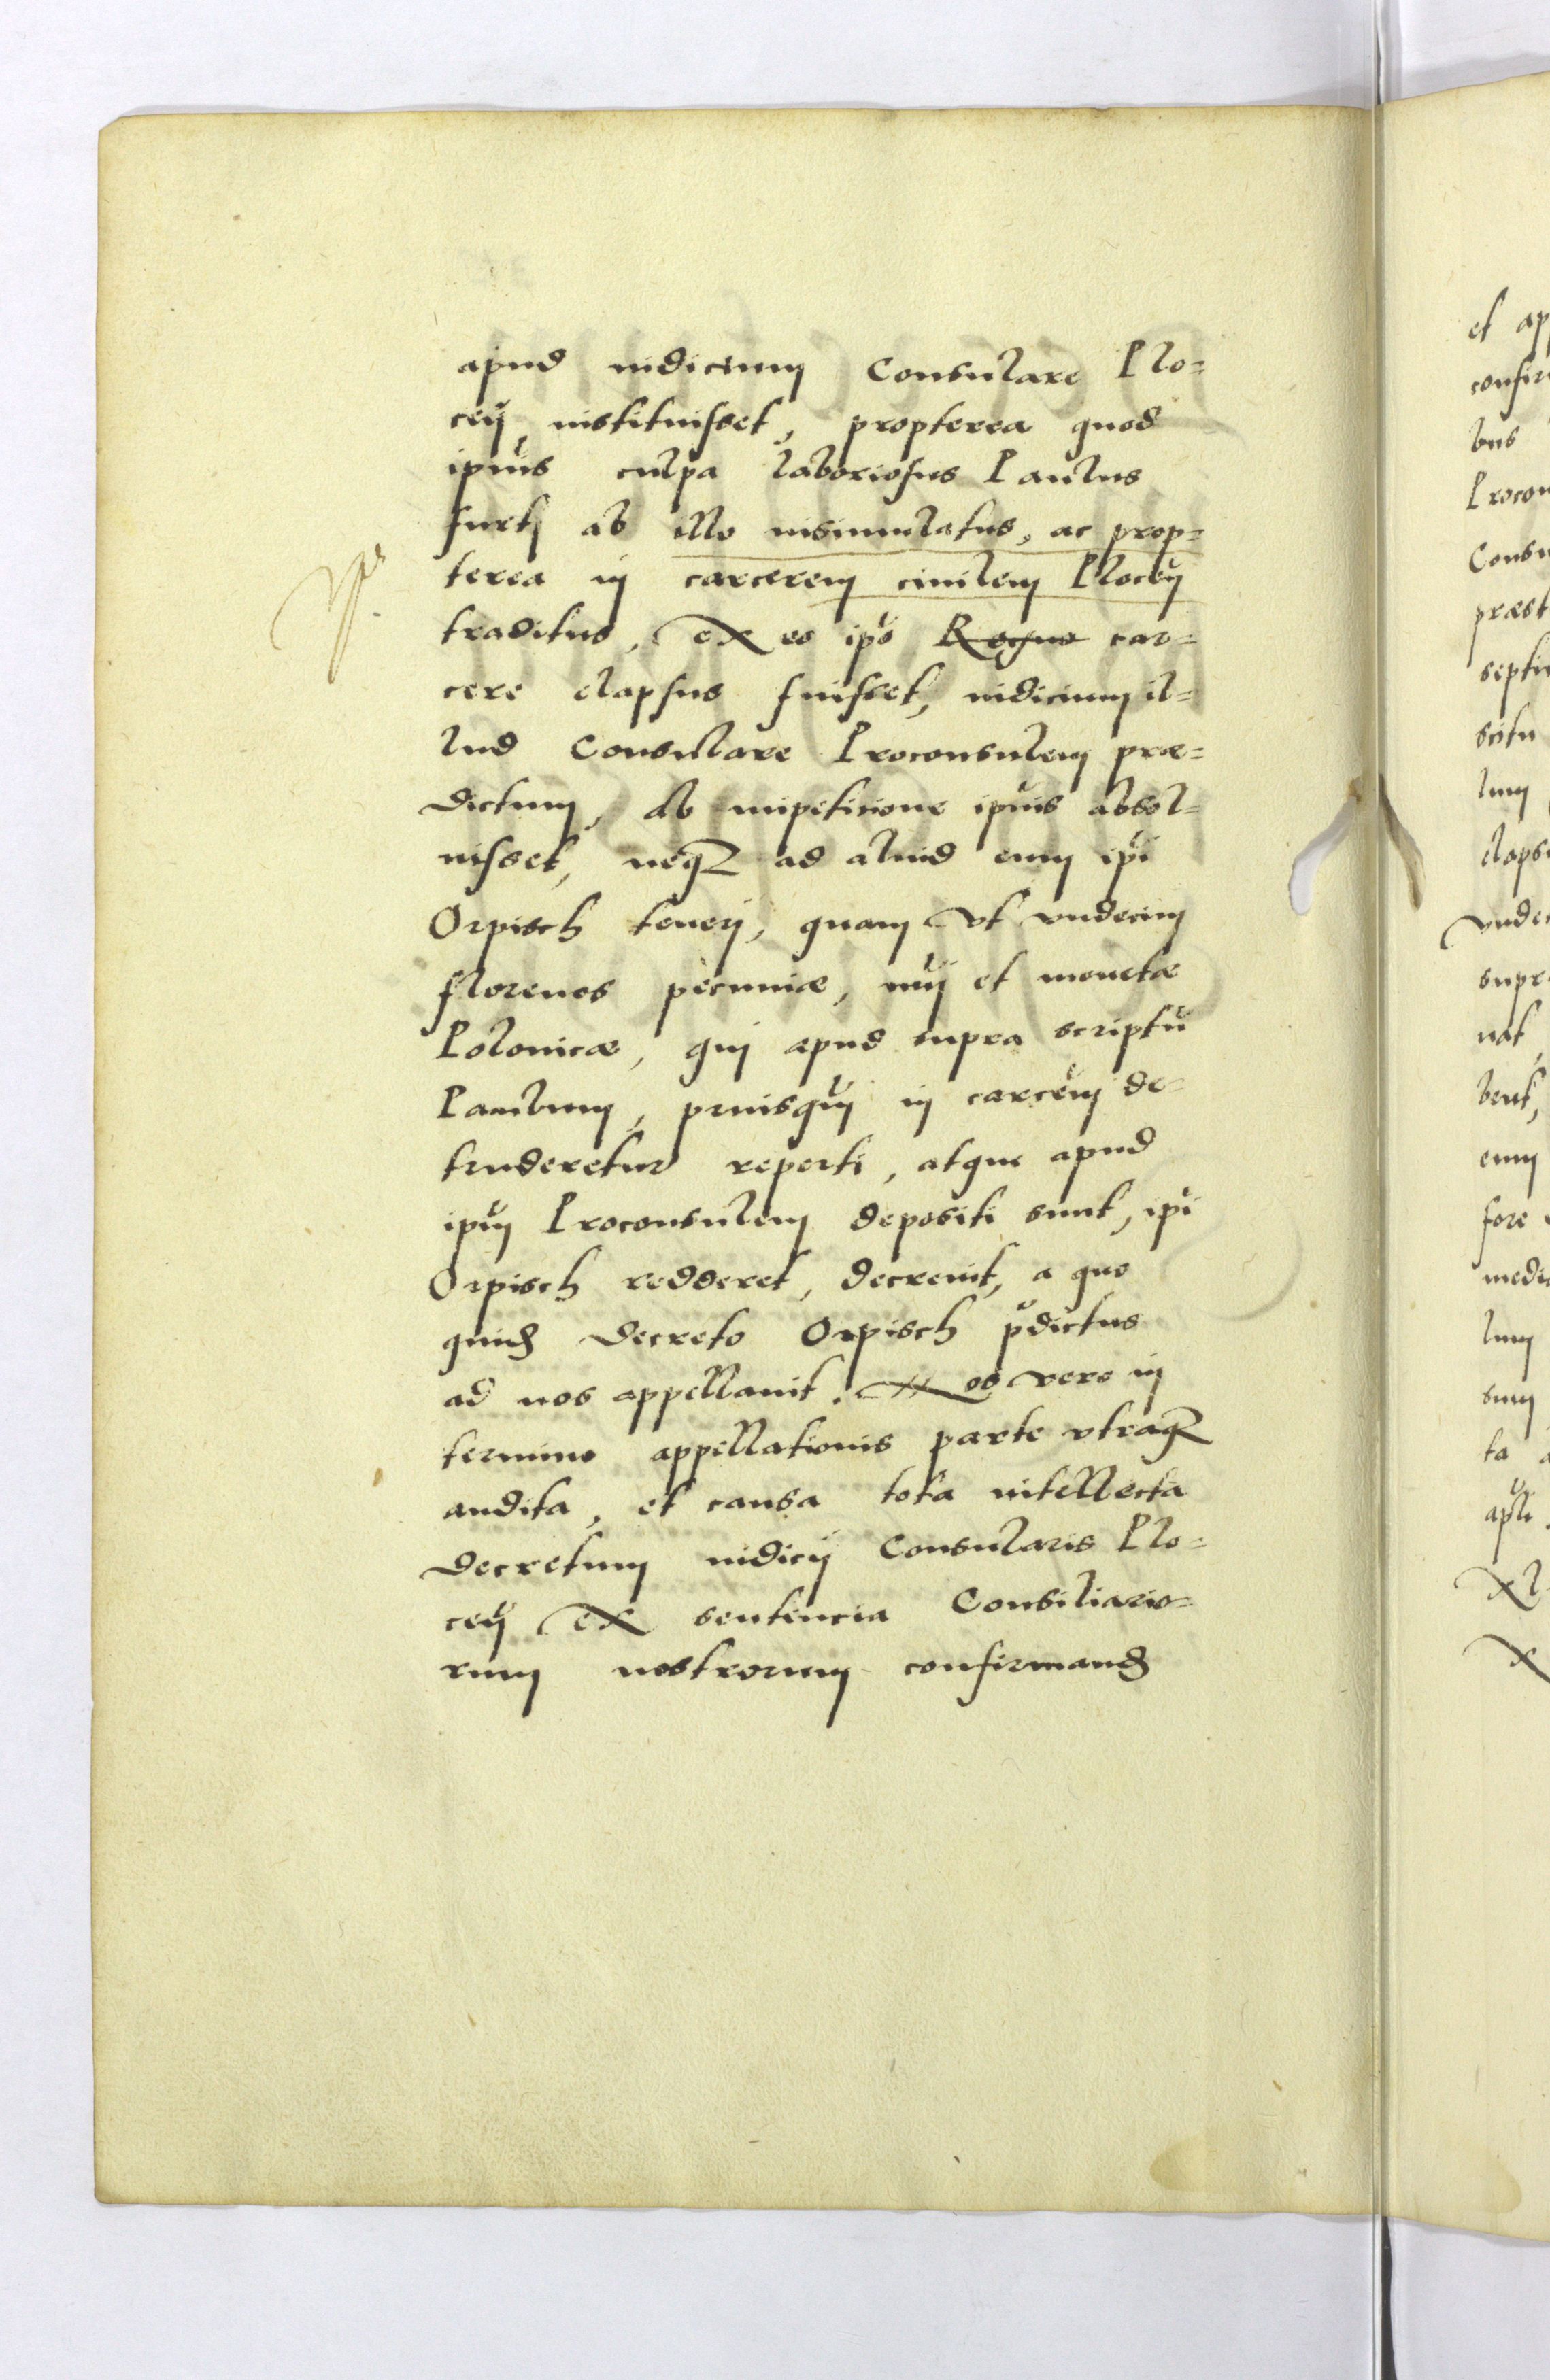 apud iudicium Consulare Plo=
ceñ instituisset, propterea quod
ipsius culpa laboriosus Paulus
furtj ab illo insimulatus, ac prop=
terea in carcerem ciuilem Ploceñ
traditus, ex eo ipõ Regno car=
cere elapsus fuisset, iudicium il=
lud Consulare Proconsulem præ=
dictum, ab impeticione ipĩus absol=
uisset, neqꝫ ad aliud eum ipĩ
Orpisch tenerj, quam vt vndecim
florenos pecuniæ, nũi et monetæ
Polonicæ, qui apud supra scriptũ
Paulum, priusqũ in carcẽm de=
truderetur reperti, atque apud
ipũm Proconsulem depositi sunt, ipĩ
Orpisch redderet, decreuit, a quo
quidẽ decreto Orpisch p̃dictus
ad nos appellauit. Nos vero in
termino appellationis parte vtraqꝫ
audita, et causa tota intellecta
decretum iudicij Consularis Plo=
ceñ ex sentencia Consiliario=
rum nostrorum confirmandũ
et ap
confir
bus
Procon
Consu
præst
septi
scitu
lum
elaps
vnde
supr
nat
bent,
eum
fore
medi
lum
sum
ta a